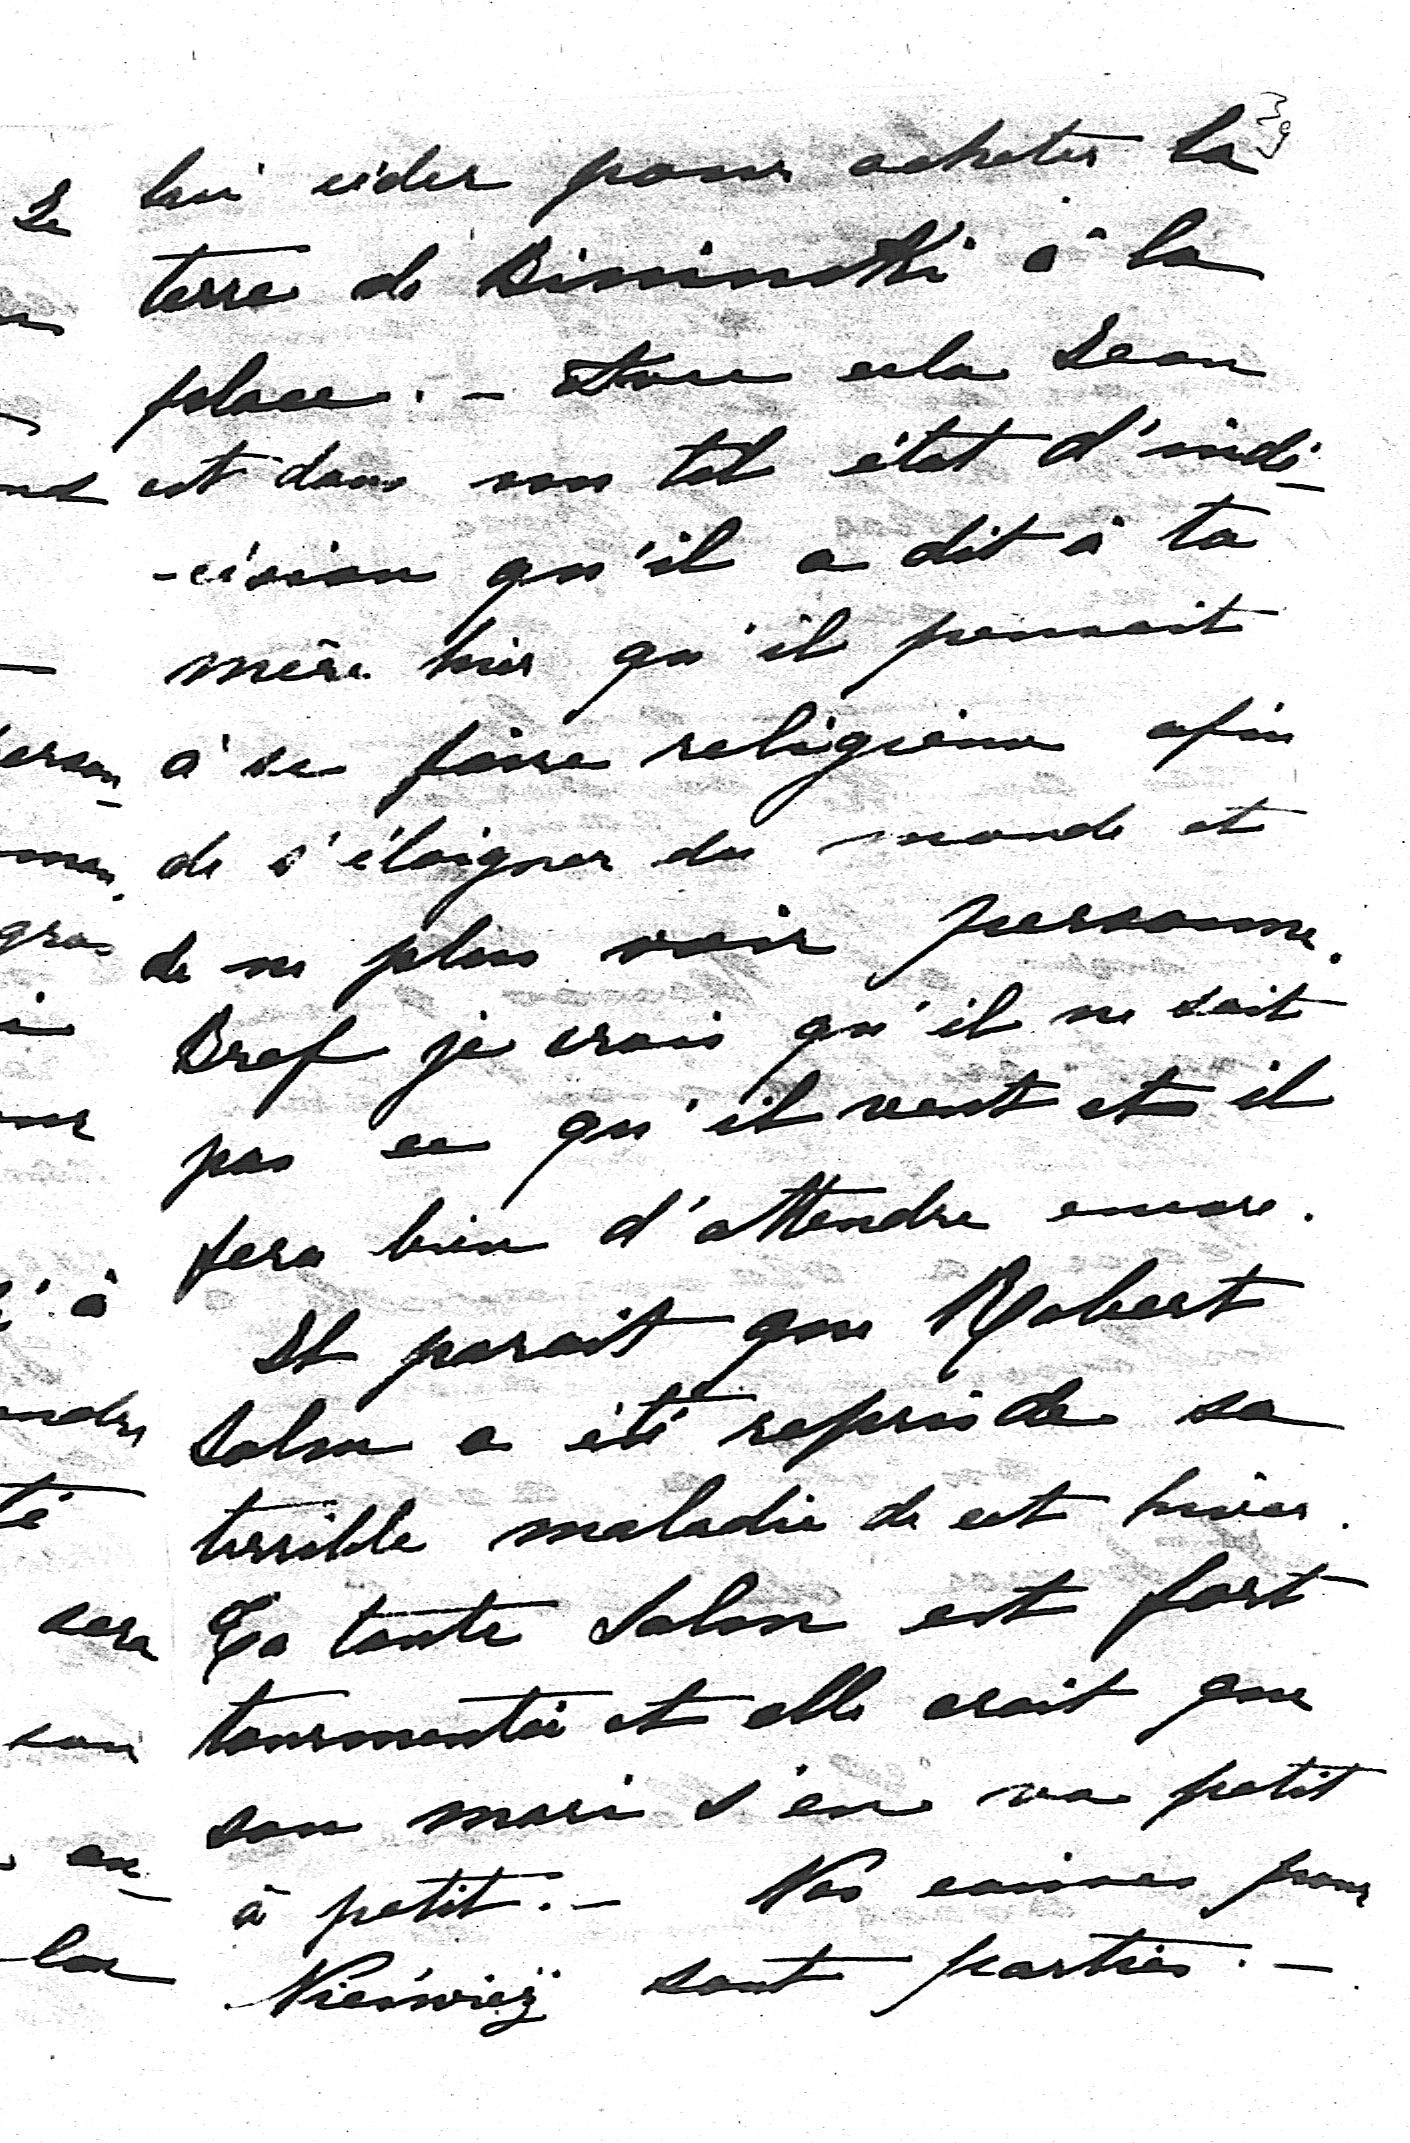 lui céder pour acheter la
terre de à la
place. – Avec cela Jean
est dans un tel état d'indé-
-cision qu'il a dit à ta
mère hier qu'il pensait
à se faire religieux afin
de s'éloigner du monde et
de ne plus voir personne.
Bref je crois qu'il ne sait
pas ce qu'il veut et il
fera bien d'attendre encore.
Il parait que Robert
Salm a été repris de sa
terrible maladie de cet hiver.
Ta tante Salm est fort
tourmentée et elle croit que
son mari s'en va petit
à petit. – Nos caisses pour
Nieśwież sont parties. –